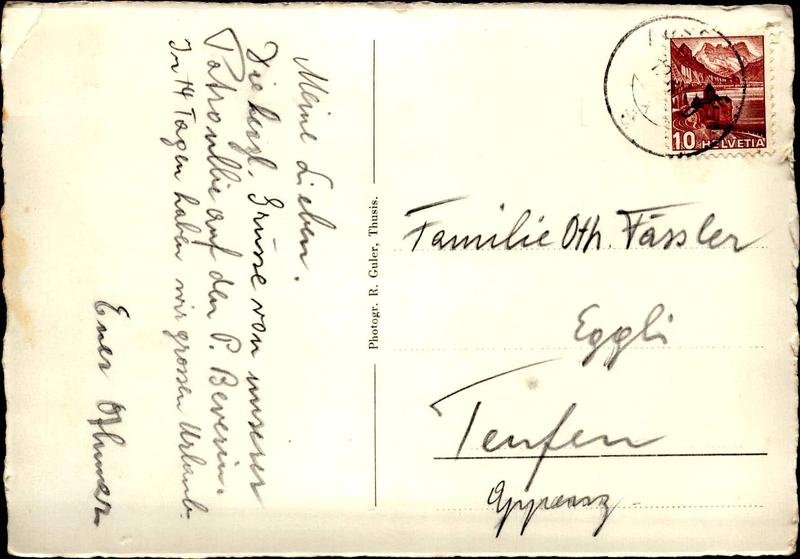 Meine Lieben.
Die herzl. Grüsse von unserer
Patroullie auf den P. Beverin.
In 14 Tagen haben wir grossen Urlaub.
Euer Othmar
Photogr. R. Guler, Thusis.
10 HELVETIA
Familie Oth. Fässler
Eggli
Teufen